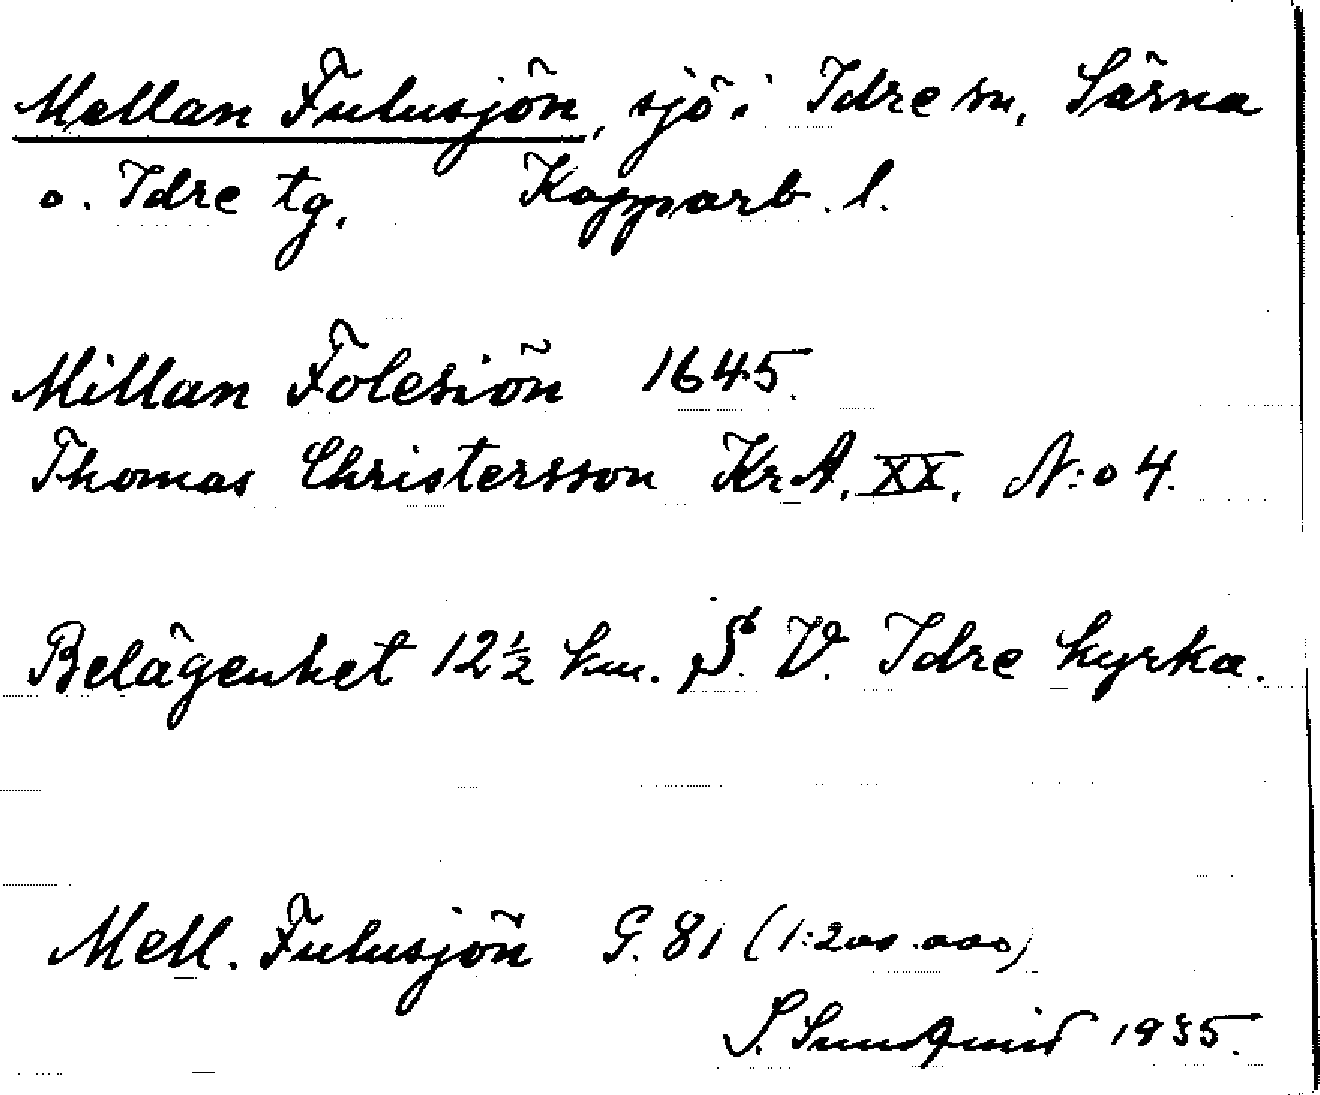 Mellan Fulusjön, sjö i Idre sn, Särna
o. Idre tg. Kopparb. l.
Millan Folesiön 1645.
Thomas Christersson KrA. XX. N:o 4.
Belägenhet 12½ km. S. V. Idre kyrka.
Mell. Fulusjön G. 81 (1:200.000)
S. Sundqvist 1935.